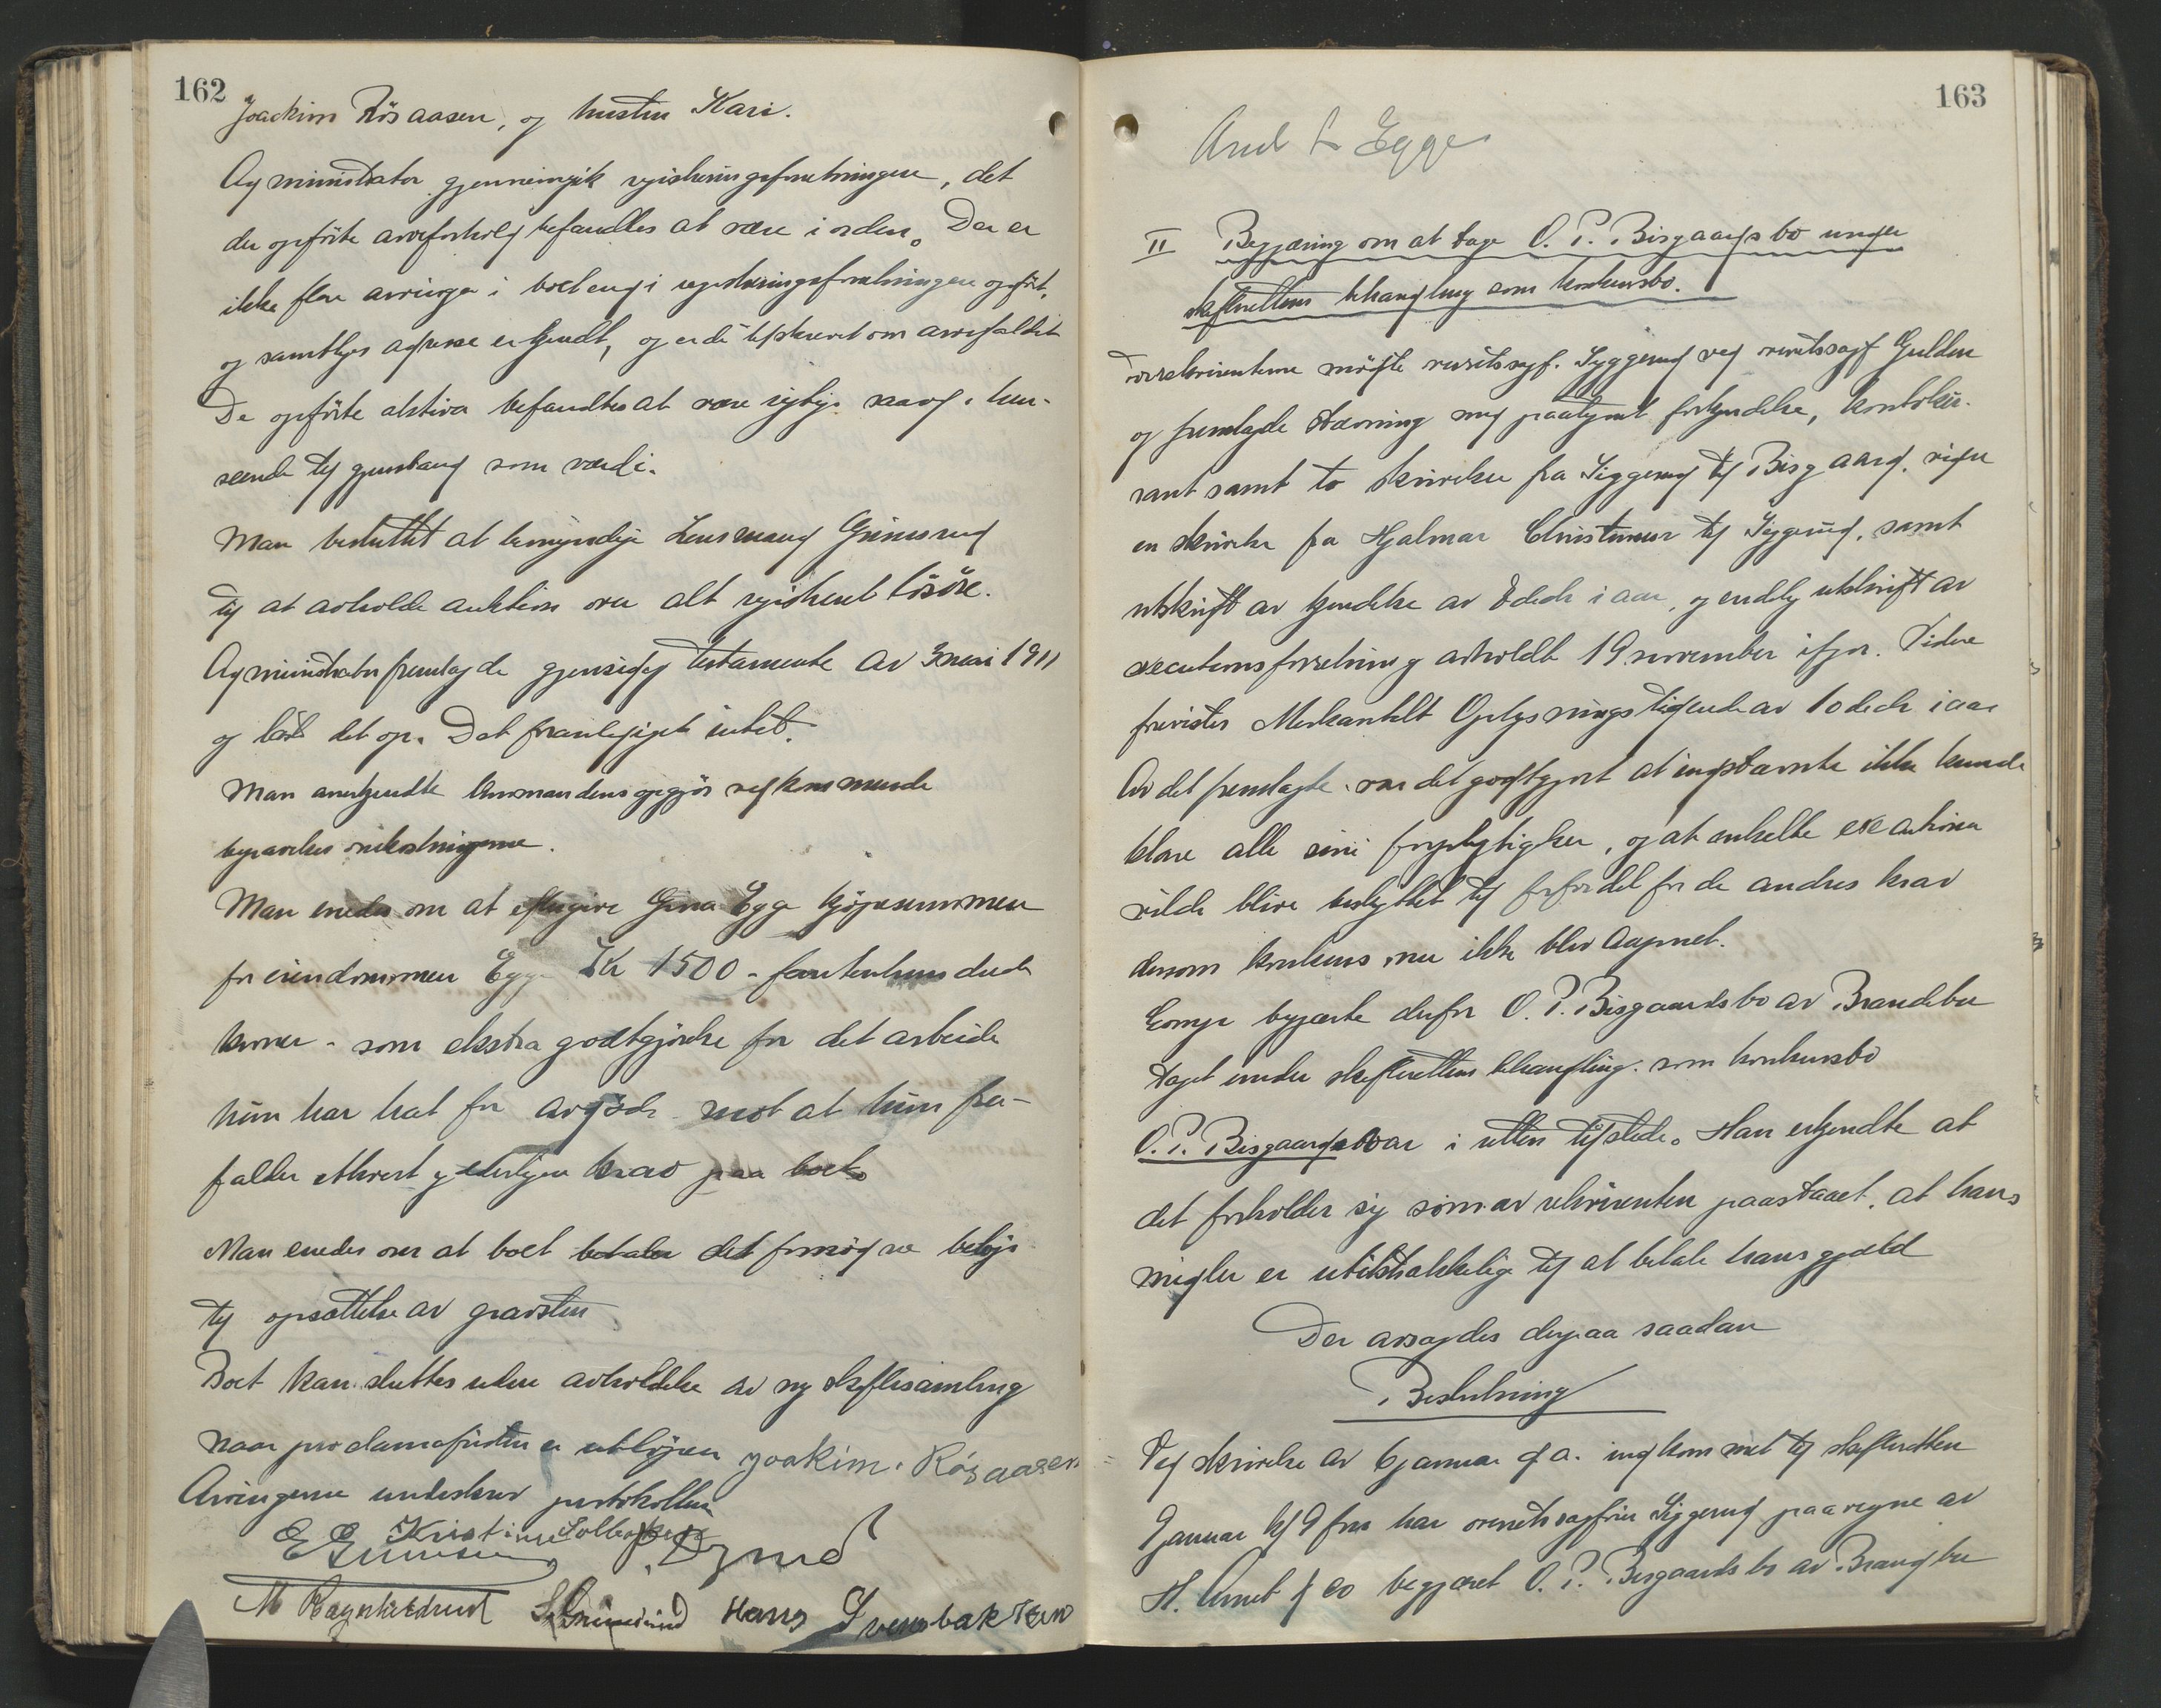 162
Joackim Rösaasen, og hustru Kari.
Administrator gjennemgik registreringsforretningen, det
der opförte arveforhold befandtes at være i orden. Der er
ikke flere arvinger i boet end i registreringsforretningen opfört,
og samtliges adresse er kjendt, og er de tilskrevet om arvefaldet
De opförte aktiva befandtes at være rigtige saavel i hen-
seende til gjenstand som værdi.
Man besluttet at bemyndige Lensmand Grimsrud
til at avholde auktion over alt registreret lösöre.
Administrator fremlagde gjensidig testamente av 3 mai 1911
og læste det op. Det foranlediget intet.
Man anerkjendte lensmandens opgjör vedkommende
begravelses omkostningerne.
Man enedes om at eftergive Gina Egge kjöpesummen
for eiendommen Egge Kr 1500 - femtenhundrede
kroner - som ekstra godtgjörelse for det arbeide
hun har hat for avdöde mot at hun fra-
falder ethvert yderligere krav paa boet.
Man enedes om at boet betaler det fornödne belöp
til opsættelse av gravsten
Boet kan sluttes uden avholdelse av ny skiftesamling
naar proclamafristen er utlöpen Joakim. Rösaasen
Arvingerne underskrev protokollen
Kristine
E Grimsrud
M Hans
163
Egge
II Begjæring om at tage O. P. Bisgaards bo under
skifterettens behandling som konkursbo.
For rekvirenterne mödte overetssagf. Siggerud ved overetssagf Gulden
og fremlagde stævning med paategnet forkyndelse, kontoku-
rant samt to skrivelser fra Siggerud til Bisgaard, videre
en skrivelse fra Hjalmar Christensen til Siggerud, samt
utskrift av kjendelse av 8 decbr i aar, og endelig utskrift av
executionsforretning avholdt 19 november ifjor. Videre
frevistes Merkantilt Oplysningstidende av 10 decbr i aar
Av det fremlagte var det godtgjort at indstævnte ikke kunde
klare alle sine forpligtigelser, og at enkelte executioner
vilde blive benyttet til forfordel for de andres krav
dersom konkurs nu ikke blev aapnet.
Comp. begjærte derfor O. P. Bisgaards bo av Brandbu
taget under skifterettens behandling som konkursbo
O. P. Bisgaard var i retten tilstede. Han erkjendte at
det forholder sig som av rekvirenten paastaaet, at hans
midler er utilstrækkelige til at betale hans gjæld
Der avsagdes derpaa saadan
Beslutning
Ved skrivelse av 6 januar d. a. indkommet til skifteretten
9 januar kl 9 fm har overetssagfører Siggerud paa vegne av
H. & Co begjæret O. P. Bisgaards bo av Brandbu